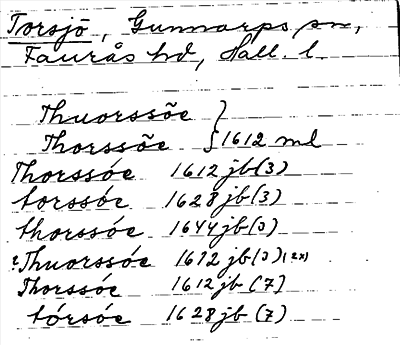 Torsjö, Gunnarps sn,
Faurås hd, Hall. l.
Thuorssöe }
Thorssöe } 1612 ml
Thorssóe 1612 jb (3)
torssóe 1628 jb (3)
thorssóe 1644 jb (3)
Thuorssóe 1612 jb (3) (2x)
Thorssóe 1612 jb (7)
tórsóe 1628 jb (7)